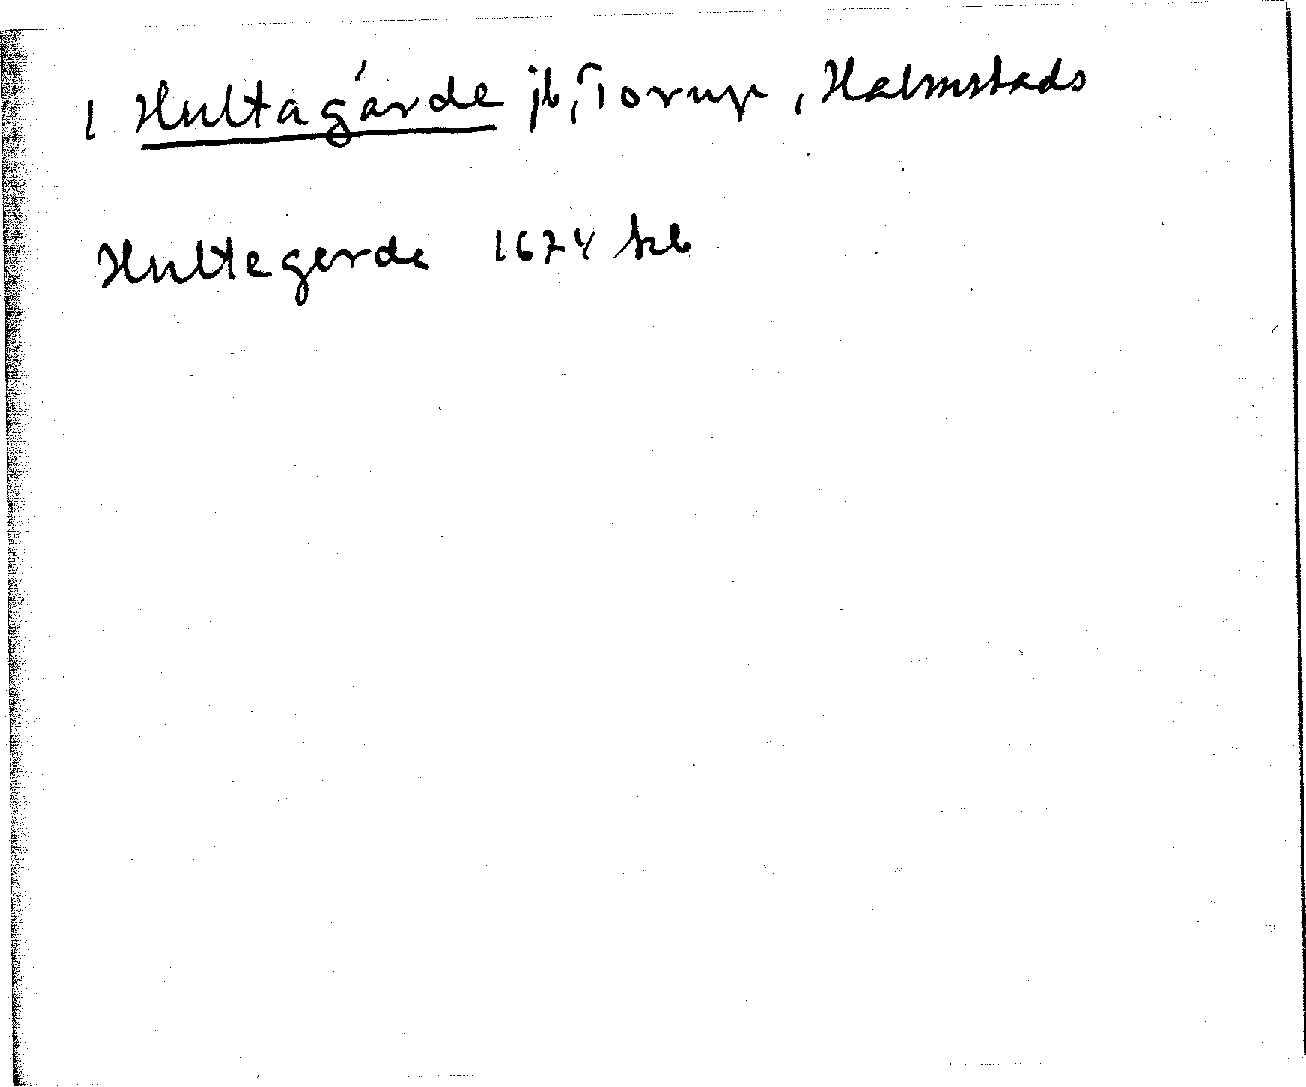 1 Hultagårde jb, Torup, Halmstads
Hultegerde 1674 skb